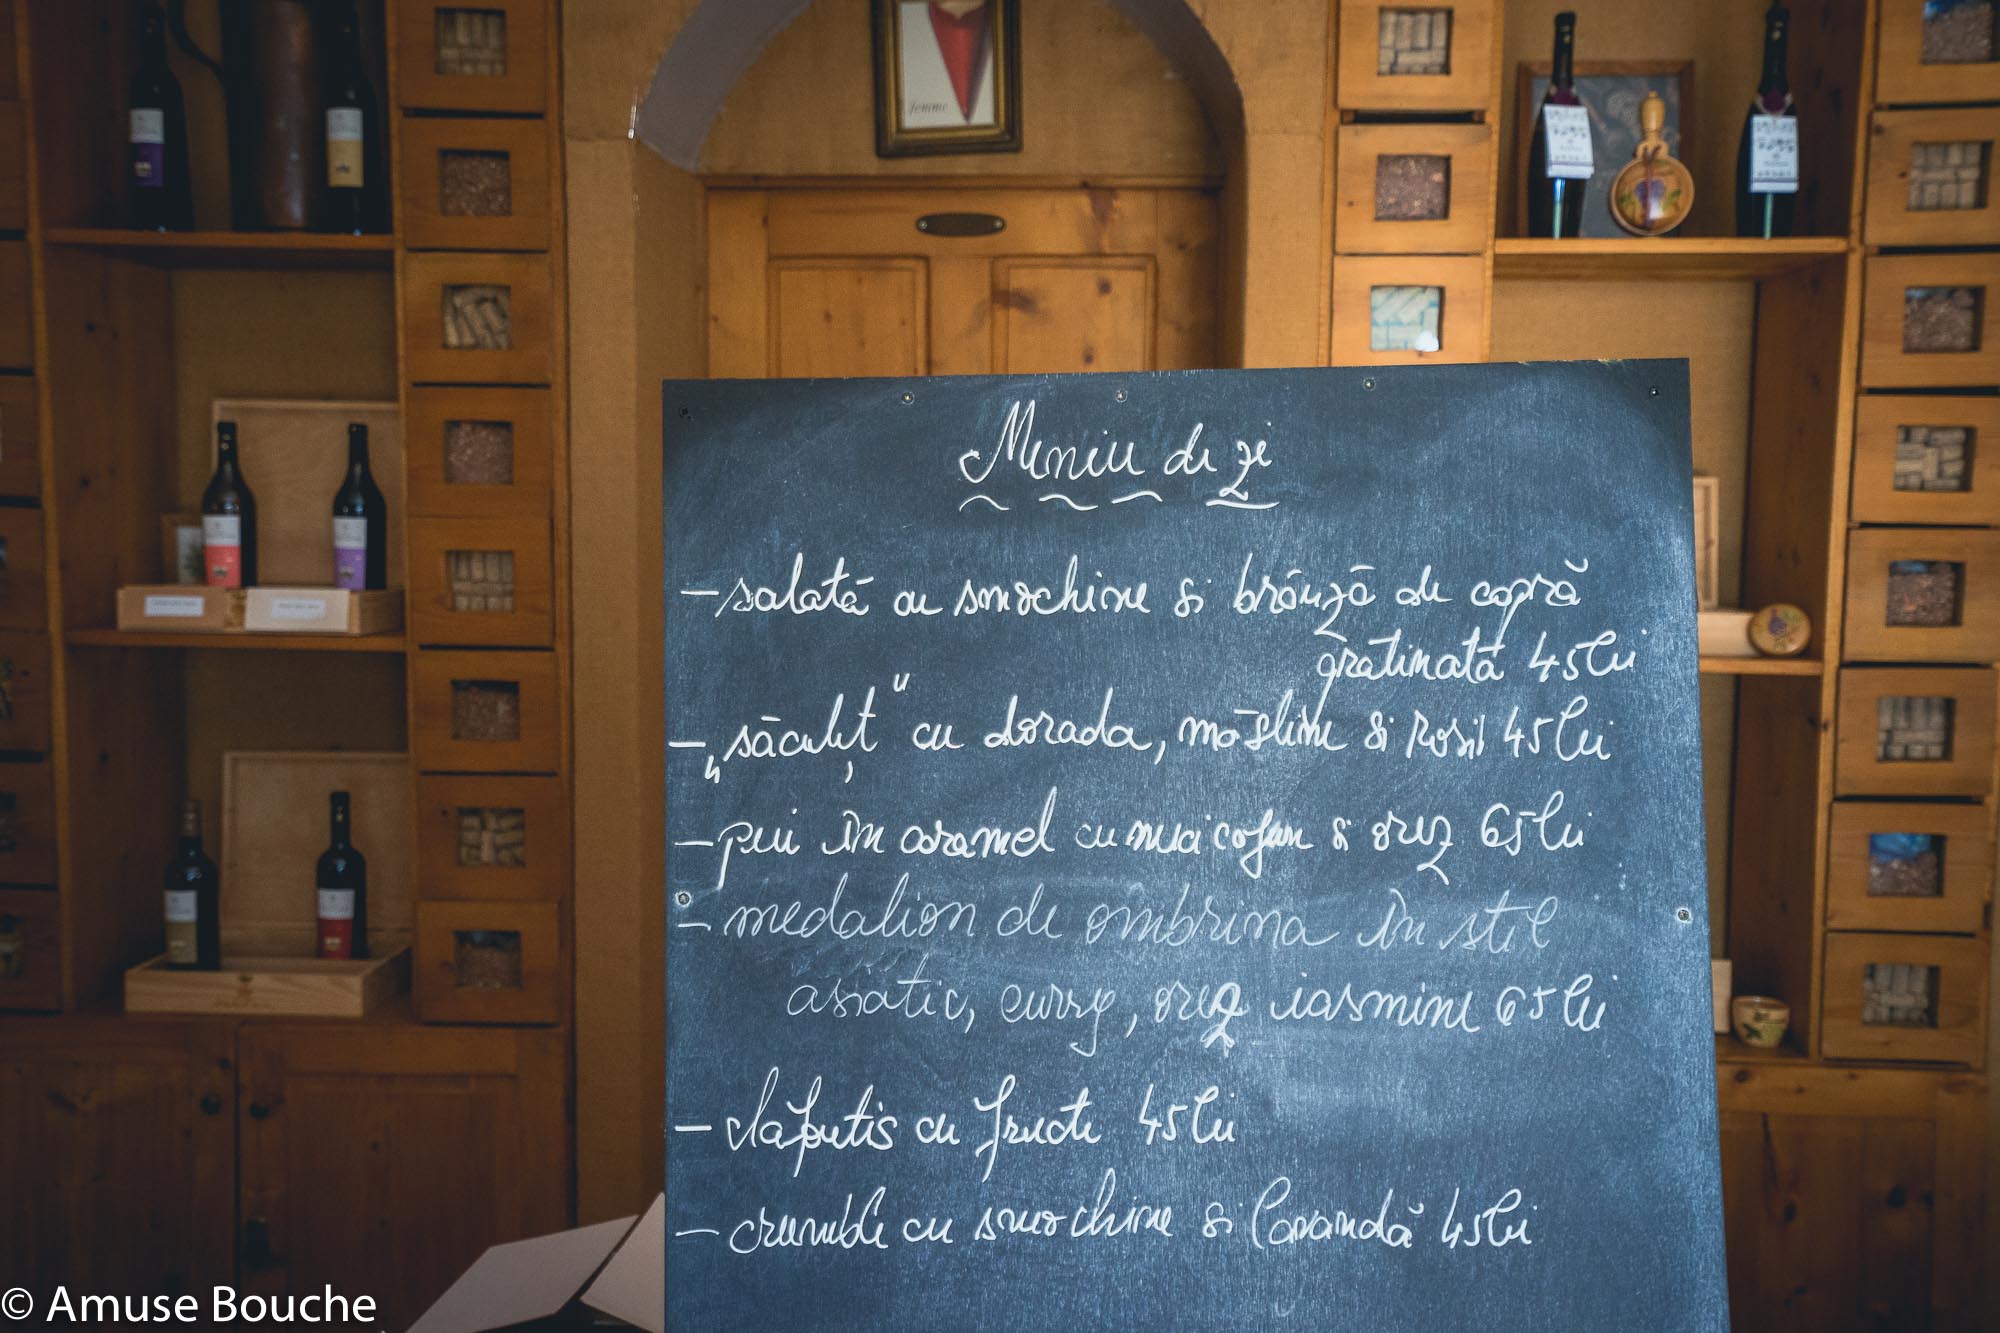 femme
Meniu de zi
- salată cu smochine si brânză de capră
gratinată 45 lei
- „săculeț" cu dorada, măsline si rosii 45 lei
- pui în caramel cu nuci cajun si orez 65 lei
- medalion de ombrina în stil
asiatic, curry, orez iasmine 65 lei
- clafoutis cu fructe 45 lei
- crumble cu smochine si lavandă 45 lei
© Amuse Bouche